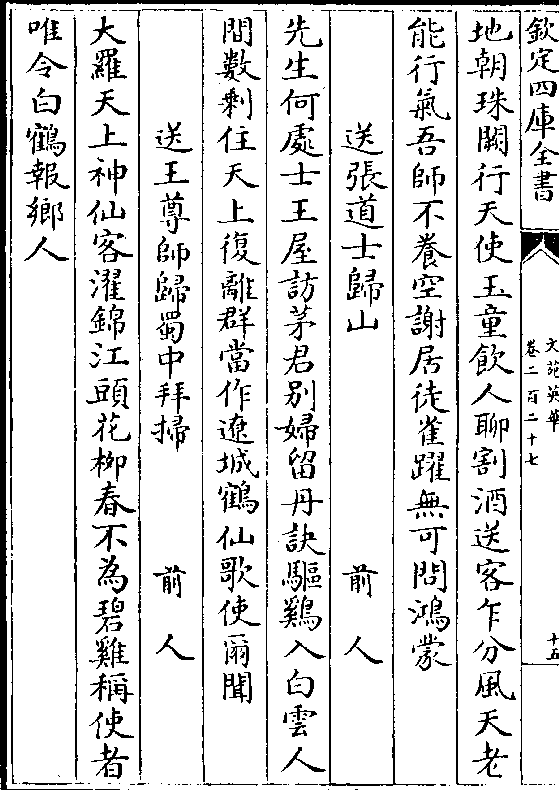 欽定四庫全書
文苑英華
卷二百二十七
十五
地朝珠闕行天使玉童飲人聊割酒送客乍分風天老
能行氣吾師不養空謝居徒雀躍無可問鴻蒙
送張道士歸山 前人
先生何處士王屋訪茅君别婦留丹訣驅鷄入白雲人
間數剩住天上復離群當作遼城鶴仙歌使爾聞
送王尊師歸蜀中拜掃 前人
大羅天上神仙客濯錦江頭花柳春不為碧雞稱使者
唯令白鶴報鄉人